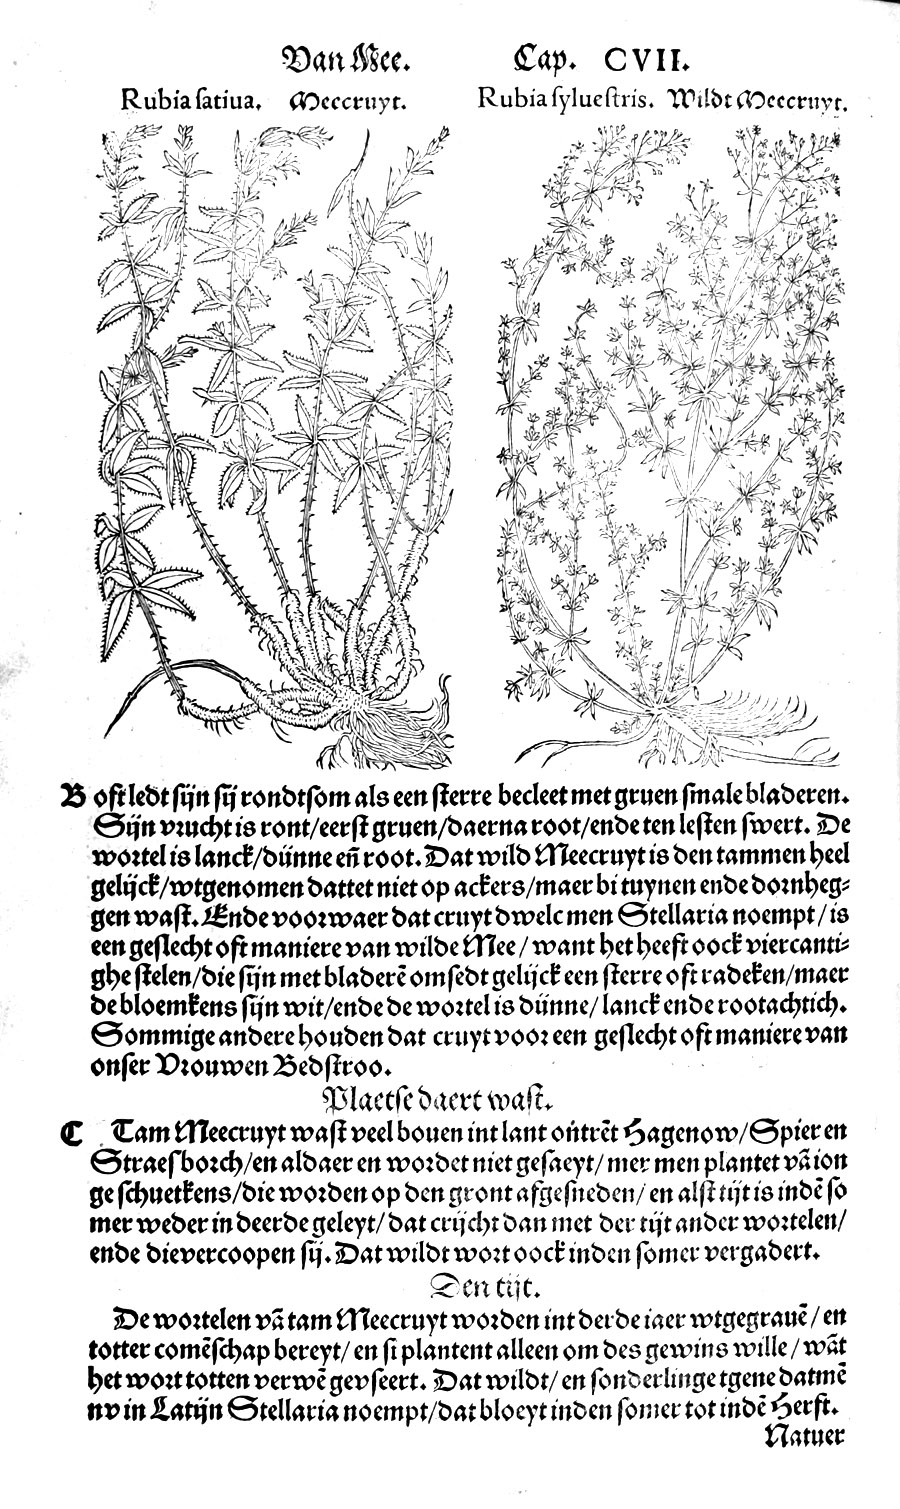 Van Mee. Cap. CVII.
Rubia satiua. Meecruyt. Rubia syluestris. Wildt Meecruyt.
B oft ledt sijn sij rondtsom als een sterre becleet met gruen smale bladeren.
Sijn vrucht is ront/eerst gruen/daerna root/ende ten lesten swert. De
wortel is lanck/dünne eñ root. Dat wild Meecruyt is den tammen heel
gelijck/wtgenomen dattet niet op ackers/maer bi tuynen ende dornheg⸗
gen wast. Ende voorwaer dat cruyt dwelc men Stellaria noempt/is
een geslecht oft maniere van wilde Mee/want het heeft oock viercanti⸗
ghe stelen/die sijn met bladerē omsedt gelijck een sterre oft radeken/maer
de bloemkens sijn wit/ende de wortel is dünne/lanck ende rootachtich.
Sommige andere houden dat cruyt voor een geslecht oft maniere van
onser Vrouwen Bedstroo.
Plaetse daert wast.
C Tam Meecruyt wast veel bouen int lant ontrēt Hagenow/Spier en
Straesborch/en aldaer en wordet niet gesaeyt/mer men plantet vā ion
ge schuetkens/die worden op den gront afgesneden/en alst tijt is indē so
mer weder in deerde geleyt/dat crijcht dan met der tijt ander wortelen/
ende dievercoopen sij. Dat wildt wort oock inden somer vergadert.
Den tijt.
De wortelen vā tam Meecruyt worden int derde iaer wtgegrauē/en
totter comēschap bereyt/en si plantent alleen om des gewins wille/wāt
het wort totten verwē gevseert. Dat wildt/en sonderlinge tgene datmē
nv in Latijn Stellaria noempt/dat bloeyt inden somer tot indē Herfst.
Natuer